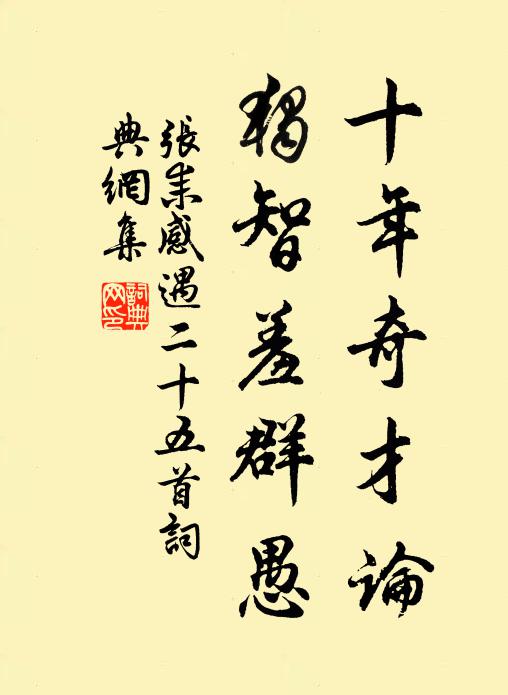 十年奇才論
獨智羞群愚
張耒感遇二十五首詞
典網集
詞典網印